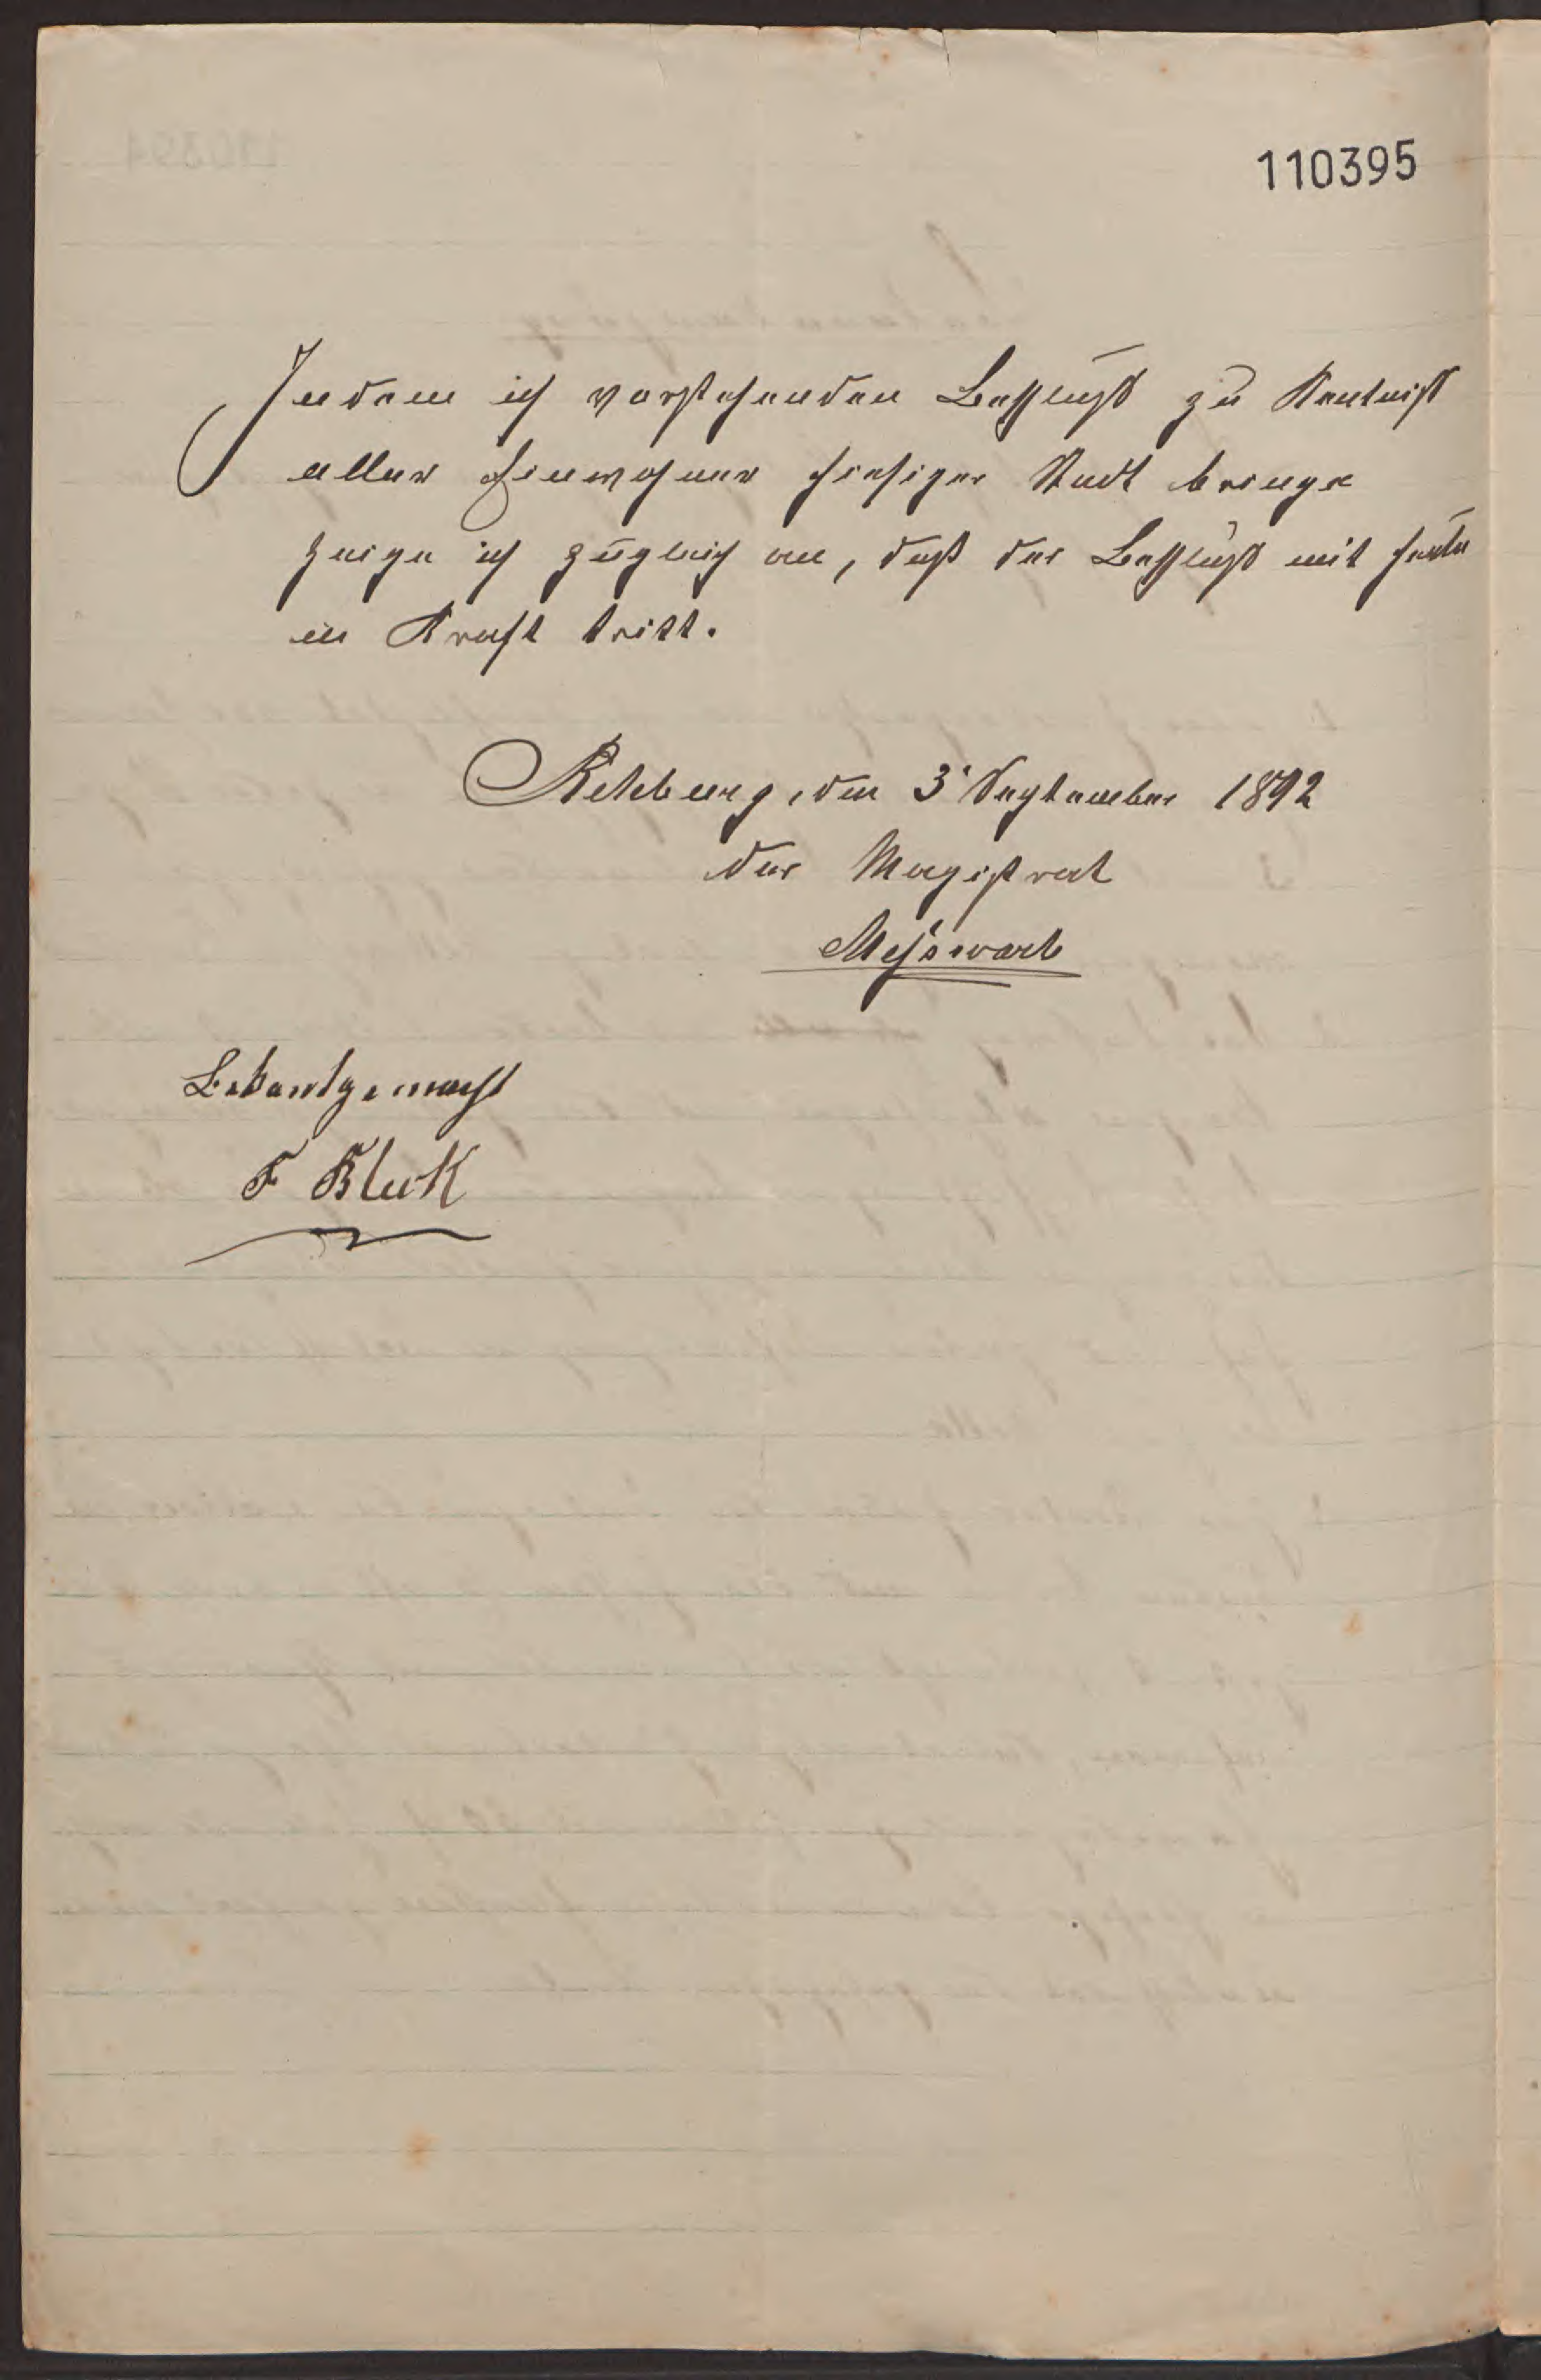 110395
Indem ich vorstehenden Beschluß zu Kentniß
aller Einwohner hiesiger Stadt bringe
zeige ich zugleich an, daß der Beschluß mit heute
in Kraft tritt.
Rehburg, den 3' September 1892
Der Magistrat
Meßwarb
Bekantgemacht
F Block